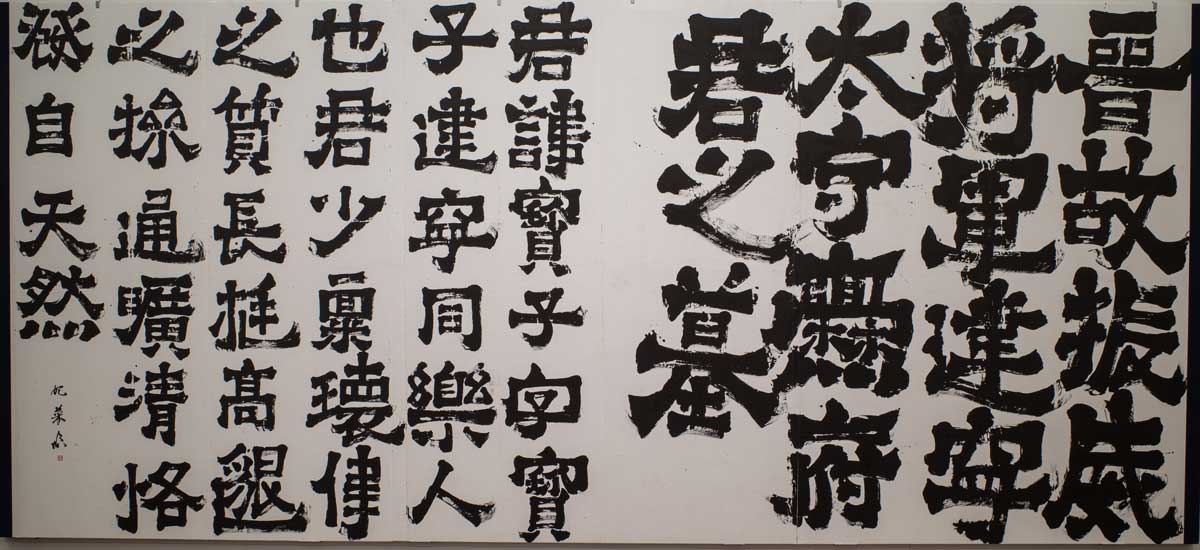 晉故振威
將軍建寧
太守爨府
君之墓
君諱寶子字寶
子建寧同樂人
也君少稟瓌偉
之質長挺高邈
之操通曠清恪
發自天然